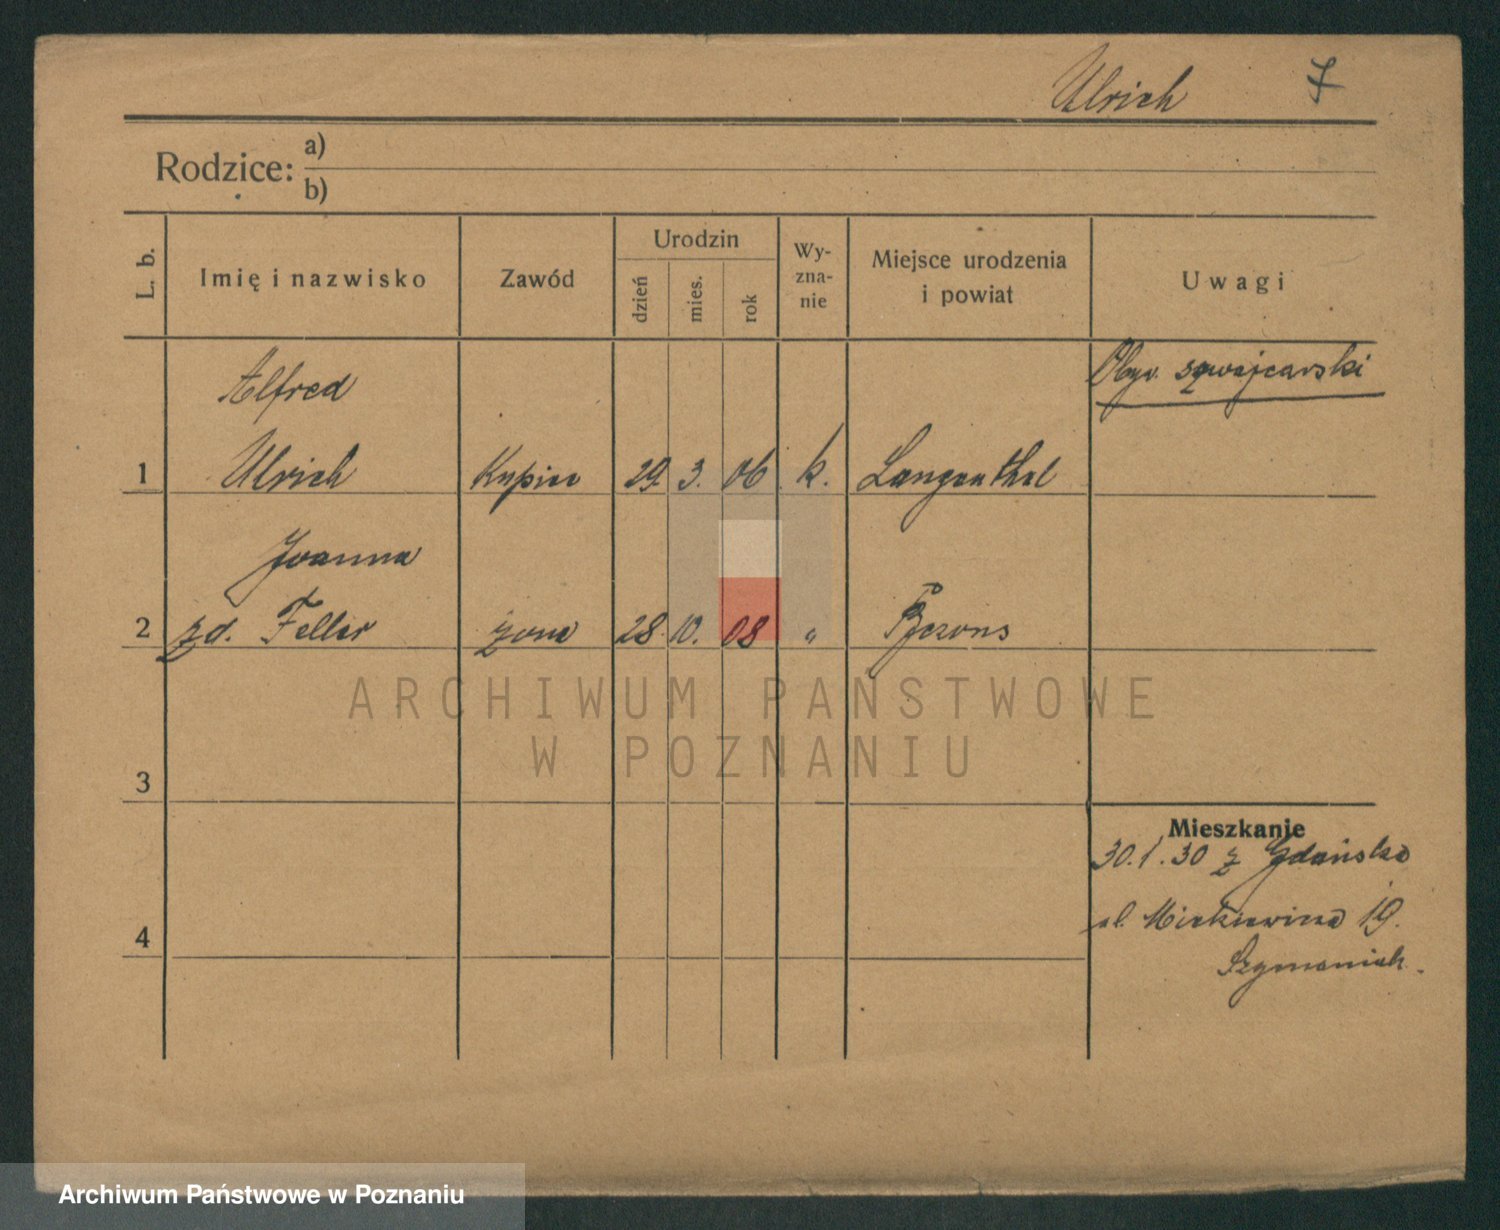 Ulrich 7
Rodzice: a)
b)
L. b.
Imię i nazwisko
Zawód
Urodzin
dzień
mies.
rok
Wy-
zna-
nie
Miejsce urodzenia
i powiat
Uwagi
Alfred
Obyw. szwajcarski
1 Ulrich Kupiec 29. 3. 06 k. Langenthal
Joanna
2 zd. Feller żona 28. 10. 08 "
3
Mieszkanie
30.1.30 z Gdańska
ul. Mickiewicza 19.
4
Szymaniak.
ARCHIWUM PAŃSTWOWE
W POZNANIU
Archiwum Państwowe w Poznaniu